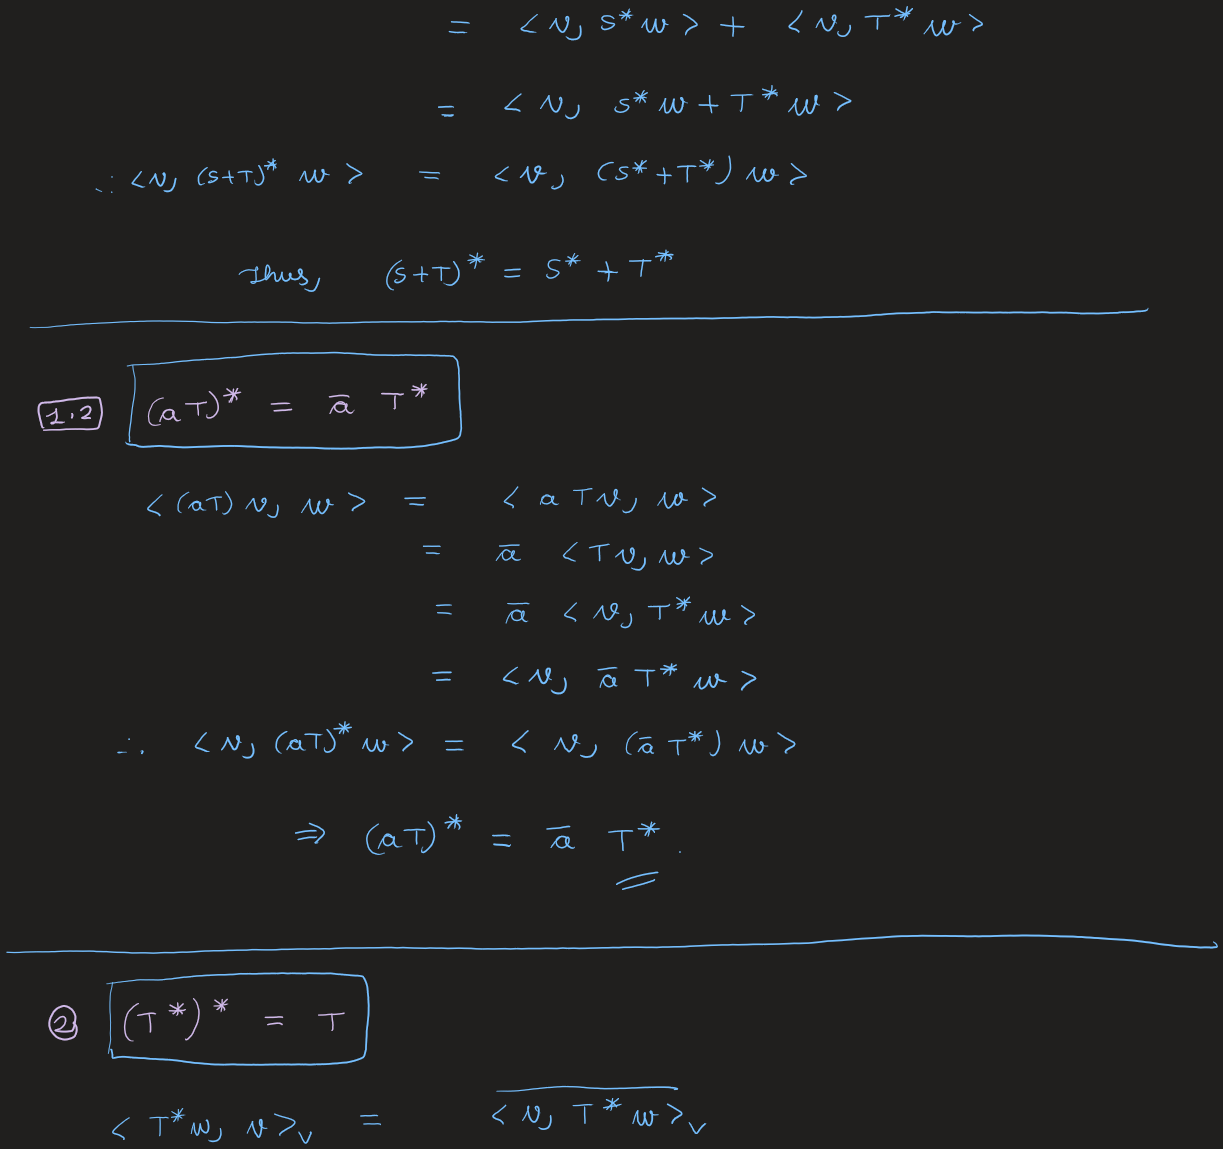 = < v, S* w > + < v, T* w >
= < v, S* w + T* w >
∴ < v, (S+T)* w > = < v, (S* + T*) w >
Thus, (S+T)* = S* + T*
1.2 (aT)* = a̅ T*
< (aT) v, w > = < a T v, w >
= a̅ < T v, w >
= a̅ < v, T* w >
= < v, a̅ T* w >
∴ < v, (aT)* w > = < v, (a̅ T*) w >
⇒ (aT)* = a̅ T*.
② (T*)* = T
< T* w, v >_V = \overline{< v, T* w >}_V